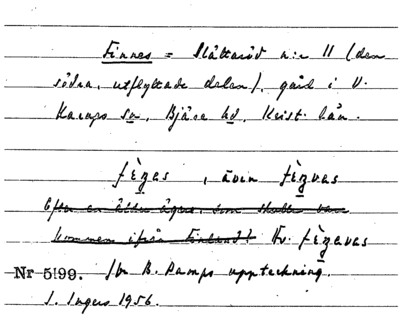 Finnes = Slättaröd n:r 11 (den
södra, utflyttade delen), gård i V.
Karups sn, Bjäre hd, Krist. län.
fègas, även fègvas
Efter en äldre ägare, som skulle vara
kommen ifrån Finland? Hv. fègavas
Nr 5199. fr. B. Pamps uppteckning.
I. Ingers 1956.